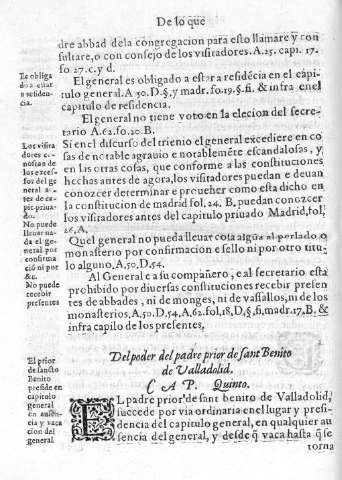 De lo que
dre abbad dela congregacion para esto llamare y con
sultare, o con consejo de los visitadores. A. 25. capi. 17.
fo 27. c. y d.
Es obliga
do a estar
a residen-
cia.
El general es obligado a estar a residēcia en el capi-
tulo general. A 50. D. §, y madr. fo. 19. §. fi. & infra en el
capitulo de residencia.
El general no tiene voto en la elecion del secre-
tario A. 62. fo. 20. B.
Los visita
dores co-
nozcan de
los exces-
sos del ge
neral
tes de ca-
pit. priua-
do.
Si en el discurso del trienio el general excediere en co
sas de notable agrauio e notablemēte escandalosas, y
en las otras cosas, que conforme a las constituciones
hechas antes de agora, los visitadores puedan e deuan
conozcer determinar e proueher como esta dicho en
la constitucion de madrid fol. 24. B, puedan conozcer
los visitadores antes del capitulo priuado Madrid, fol,
26, A,
No puede
lleuar na-
da el ge-
neral por
confirma
ciō ni por
&c.
Quel general no pueda lleuar cosa algūa al perlado o
monasterio por confirmacion e sello ni por otro titu-
lo alguno, A, 50, D, 54,
No puede
recebir
presentes
Al General e a su compañero, e al secretario esta
prohibido por diuersas constituciones recebir presen
tes de abbades, ni de monges, ni de vassallos, ni de los
monasterios, A, 50, D, 54, A, 62, fol, 18, D, §, fi, madr, 17, B, &
infra capilo de los presentes,
Del poder del padre prior de sant Benito
de Valladolid.
C A P. Quinto.
El prior
de sancto
Benito
preside en
capitulo
general
en ausēn-
cia y vaca
cion del
general
EL padre prior de sant benito de Valladolid,
succede por via ordinaria en el lugar y presi-
dencia del capitulo general, en qualquier au
sencia del general, y desde q̄ vaca hasta q̄ se
torna